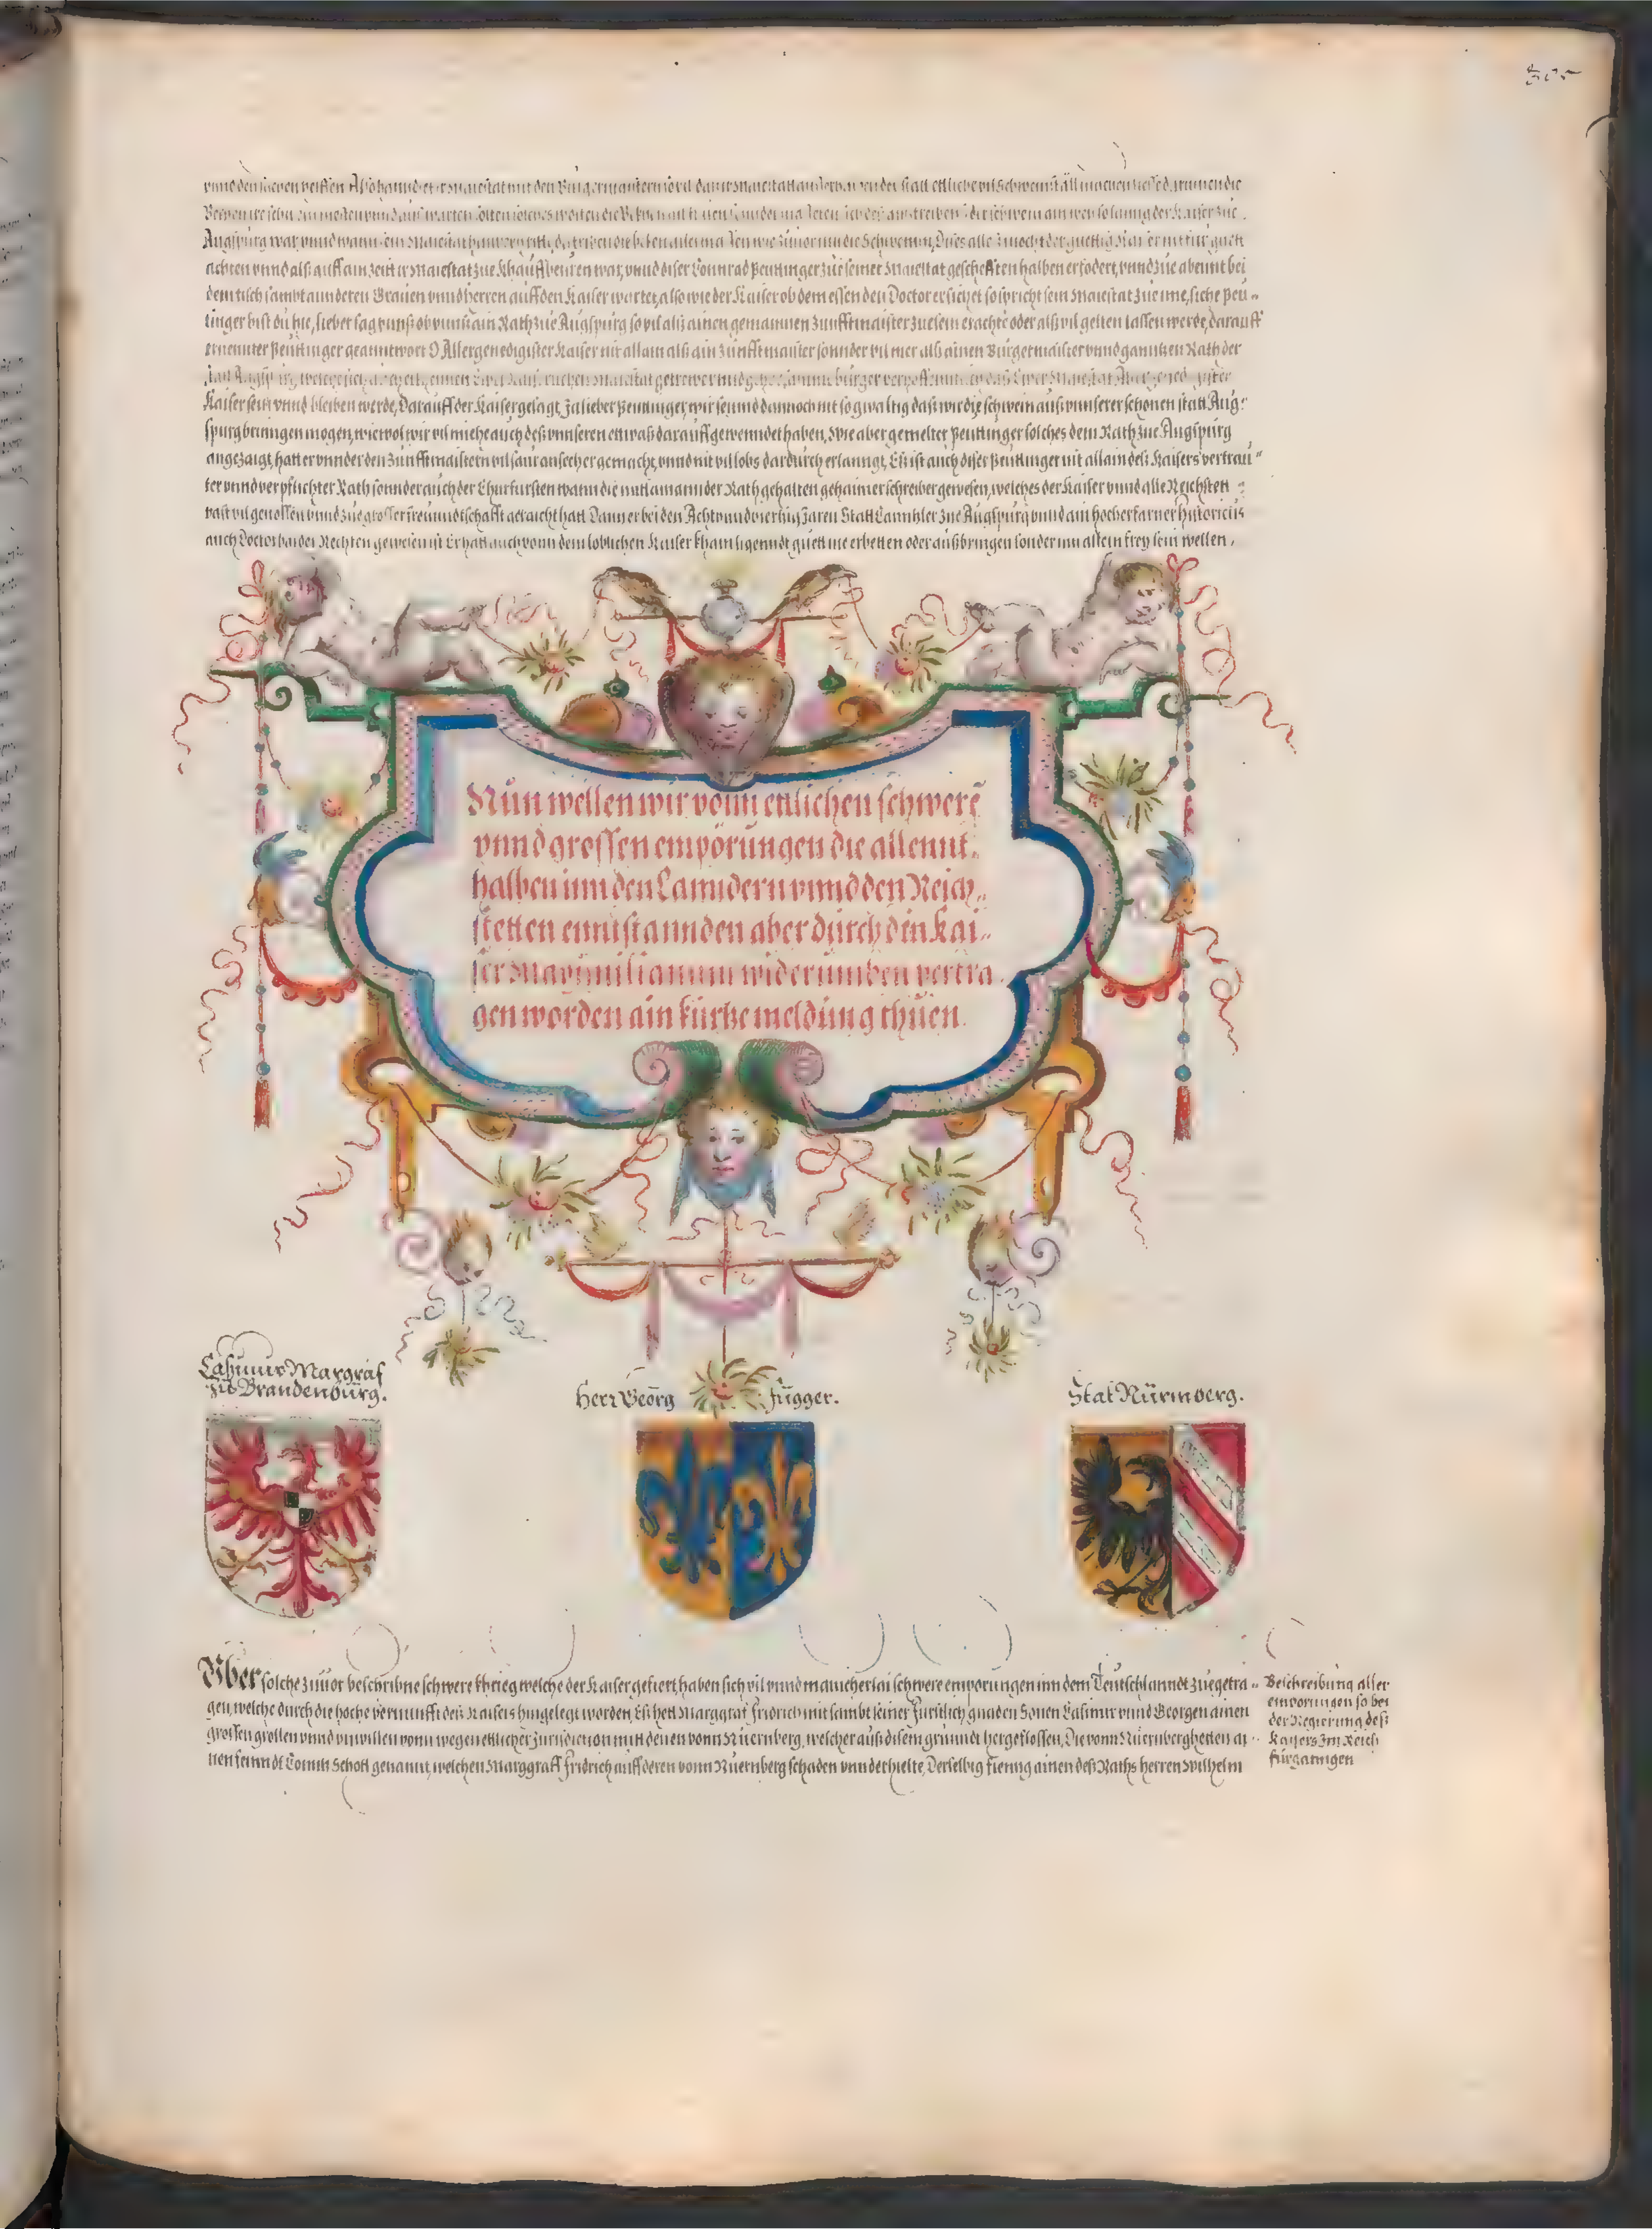 Augspurg war, vnnd wann sein Maiestat
achten vnnd alß auff ain zeit ir Maiestat zue Khauffbeuren war, vnnd diser Connrad Peuttinger zue seiner Maiestat gescheften halben erfodert, vnnd zue abennt bei
dem tisch sambt annderen Grauen vnnd herren auff den Kaiser wartet, also wie der Kaiser ob dem essen den Doctor ersichet so spricht sein Maiestat zue ime, siche Peu-
tinger bist du hie, lieber sag vnnß ob vnnß ain Rath zue Augspurg so vil alß ainen gemainen Zunfftmaister zuesein erachte oder alß vil gelten lassen werde, darauff
ernennter Peuttinger geanntwort O Allergenedigister Kaiser nit allain alß ain zunfftmaister sonnder vil mer alß ainen Burgermaister vnnd ganntzen Rath der
Kaiser sein vnnd bleiben werde, Darauff der Kaiser gesagt, Ja lieber Peuttinger, wir seinnd dannoch nit so gwaltig daß wir die schwein auß vnnserer schönen statt Aug-
spurg brinngen mogen, wiewol wir vil miehe auch deß vnnseren ettwaß darauff gewenndet haben, Wie aber gemelter Peuttinger solches dem Rath zue Augspurg
angezaigt, hat er vnnder den zunfftmaistern vil saur ansecher gemacht, vnnd nit vil lobs dardurch erlanngt, Es ist auch diser Peuttinger nit allain deß Kaisers vertrau-
ter vnnd verpflichter Rath sonnder auch der Churfursten wann die mitainannder Rath gehalten gehaimer schreiber gewesen, welches der Kaiser vnnd alle Reichstett
vast vil genossen vnnd zue grosser freundtschafft geraicht hatt Dann er bei den Acht vnnd vierhig Jaren Statt Canntzler zue Augspurg vnnd ain hocherfarner historicus
auch Doctor baider Rechten gewesen ist Er hatt auch vonn dem loblichen Kaiser khain ligenndt guett nie erbetten oder außbringen sonder inn allein frey sein wellen,
Nun wellen wir vonn ettlichen schwerē
vnnd grossen empörungen die allennt-
halben inn den Lanndern vnnd den Reich-
stetten enntstannden aber durch den kai-
ser Maximilianum widerumben vertra
gen worden ain kurtze meldung thuen.
Casimir Margraf
zu Brandenburg.
Herr Georg Fugger.
Stat Nürmberg.
Uber solche zuuor beschribne schwere khrieg welche der Kaiser gefiert, haben sich vil vnnd mancherlai schwere emporungen inn dem Teutschlanndt zuegetra-
gen, welche durch die hoche vernunfft deß Kaisers hingelegt worden, Es hett Marggraf Fridrich mit sambt seiner Furstlich gnaden Sonen Casimir vnnd Georgen ainen
grossen grollen vnnd vnwillen vonn wegen ettlicher Jurisdiction mitt denen vonn Nuernberg, welcher auß disem grunndt hergeflossen, Die vonn Nuernberg hetten ai-
nen feinndt Conntz Schott genannt, welchen Marggraff Fridrich auff deren vonn Nuernberg schaden vnnderhielte, Derselbig fienng ainen deß Raths herren Wilhelm
Beschreibung aller
emporungen so bei
der Regierung deß
Kaysers Im Reich
fürganngen